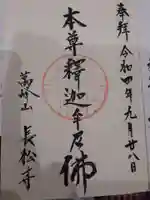 奉拝 令和四年九月廿八日
本尊釋迦牟尼佛
萬松山 長松寺